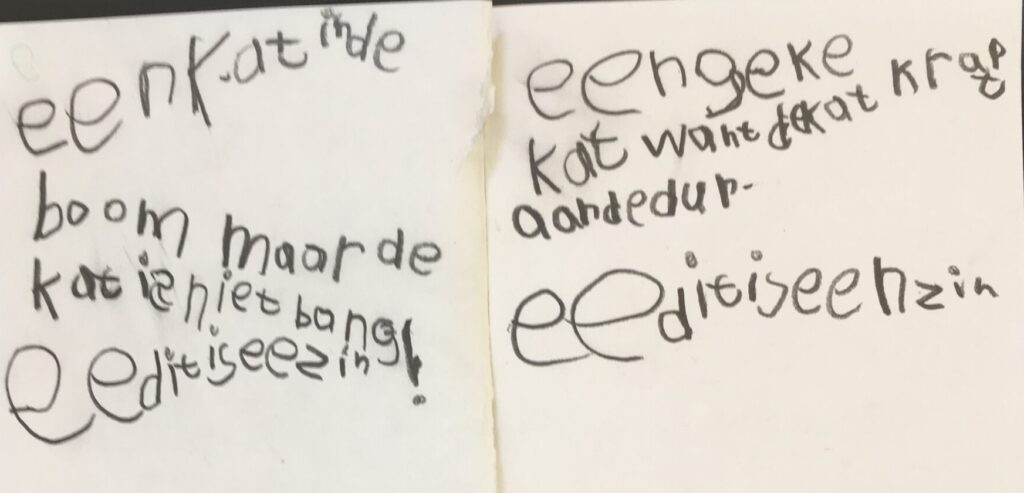 eenkat inde
boom maarde
kat ie niet bang!
eeditiseezin
eengeke
kat want dekat krapt
aandedur.
eeditiseenzin